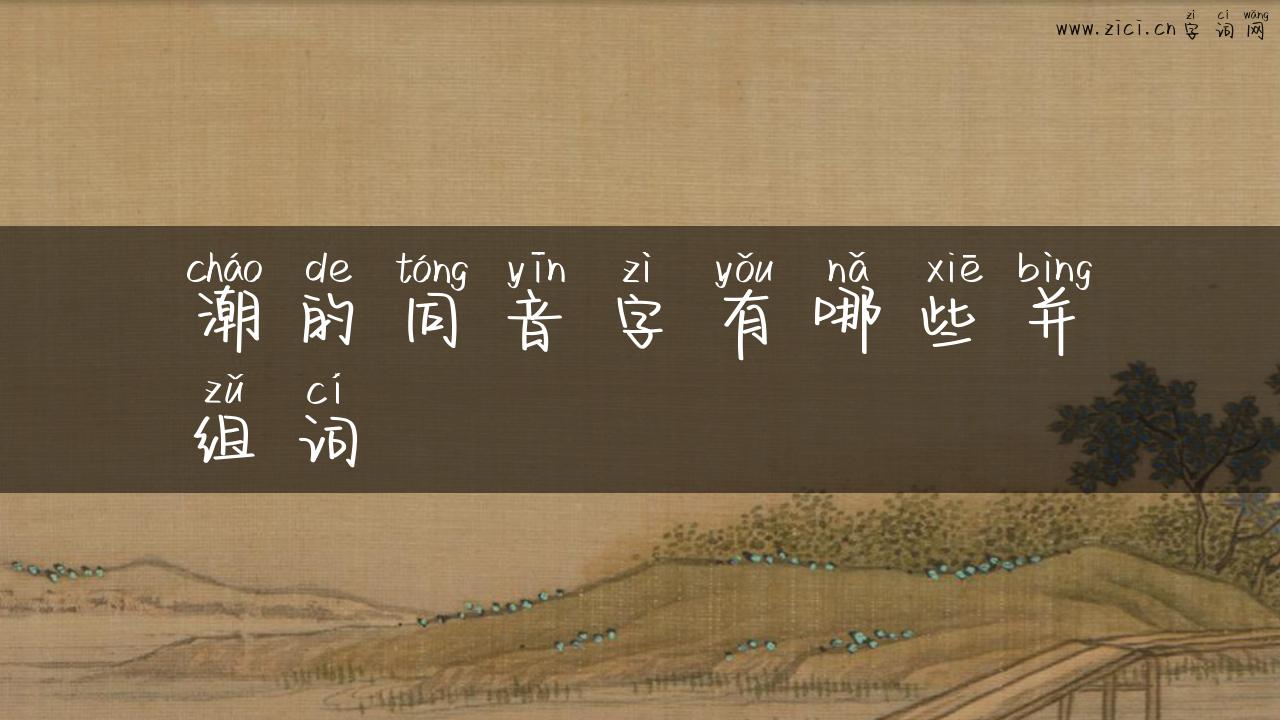 zì cí wǎng
www.zici.cn 字词网
cháo de tóng yīn zì yǒu nǎ xiē bìng
潮的同音字有哪些并
zǔ cí
组词